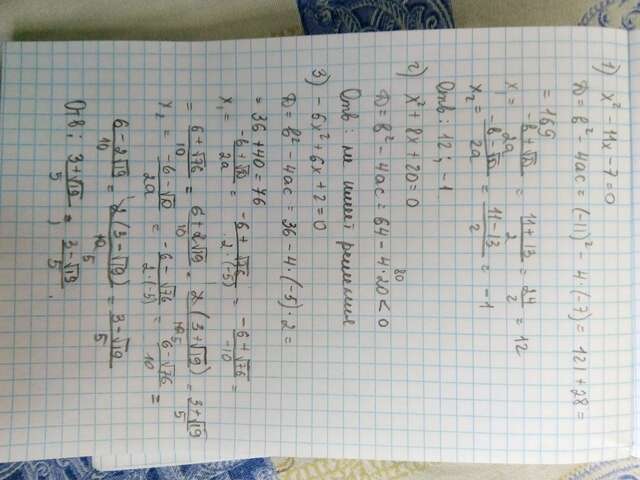 1) x² - 11x - 7 = 0
D = b² - 4ac = (-11)² - 4·(-7) = 121 + 28 =
= 169
x₁ = (-b+√D)/2a = (11+13)/2 = 24/2 = 12
x₂ = (-b-√D)/2a = (11-13)/2 = -1
Отв: 12; -1
2) x² + 8x + 20 = 0
D = b² - 4ac = 64 - 4·20 < 0
80
Отв: не имеет решения
3) -6x² + 6x + 2 = 0
D = b² - 4ac = 36 - 4·(-5)·2 =
= 36 + 40 = 76
x₁ = (-b+√D)/2a = (-6+√76)/2·(-5) = (-6+√76)/-10 =
= (6+√76)/10 = (6+2√19)/10 = 2(3+√19)/10 5 = (3+√19)/5
x₂ = (-b-√D)/2a = (-6-√76)/2·(-5) = (6-√76)/10 =
(6-2√19)/10 = 2(3-√19)/10 5 = (3-√19)/5
Отв: (3+√19)/5 ; (3-√19)/5.